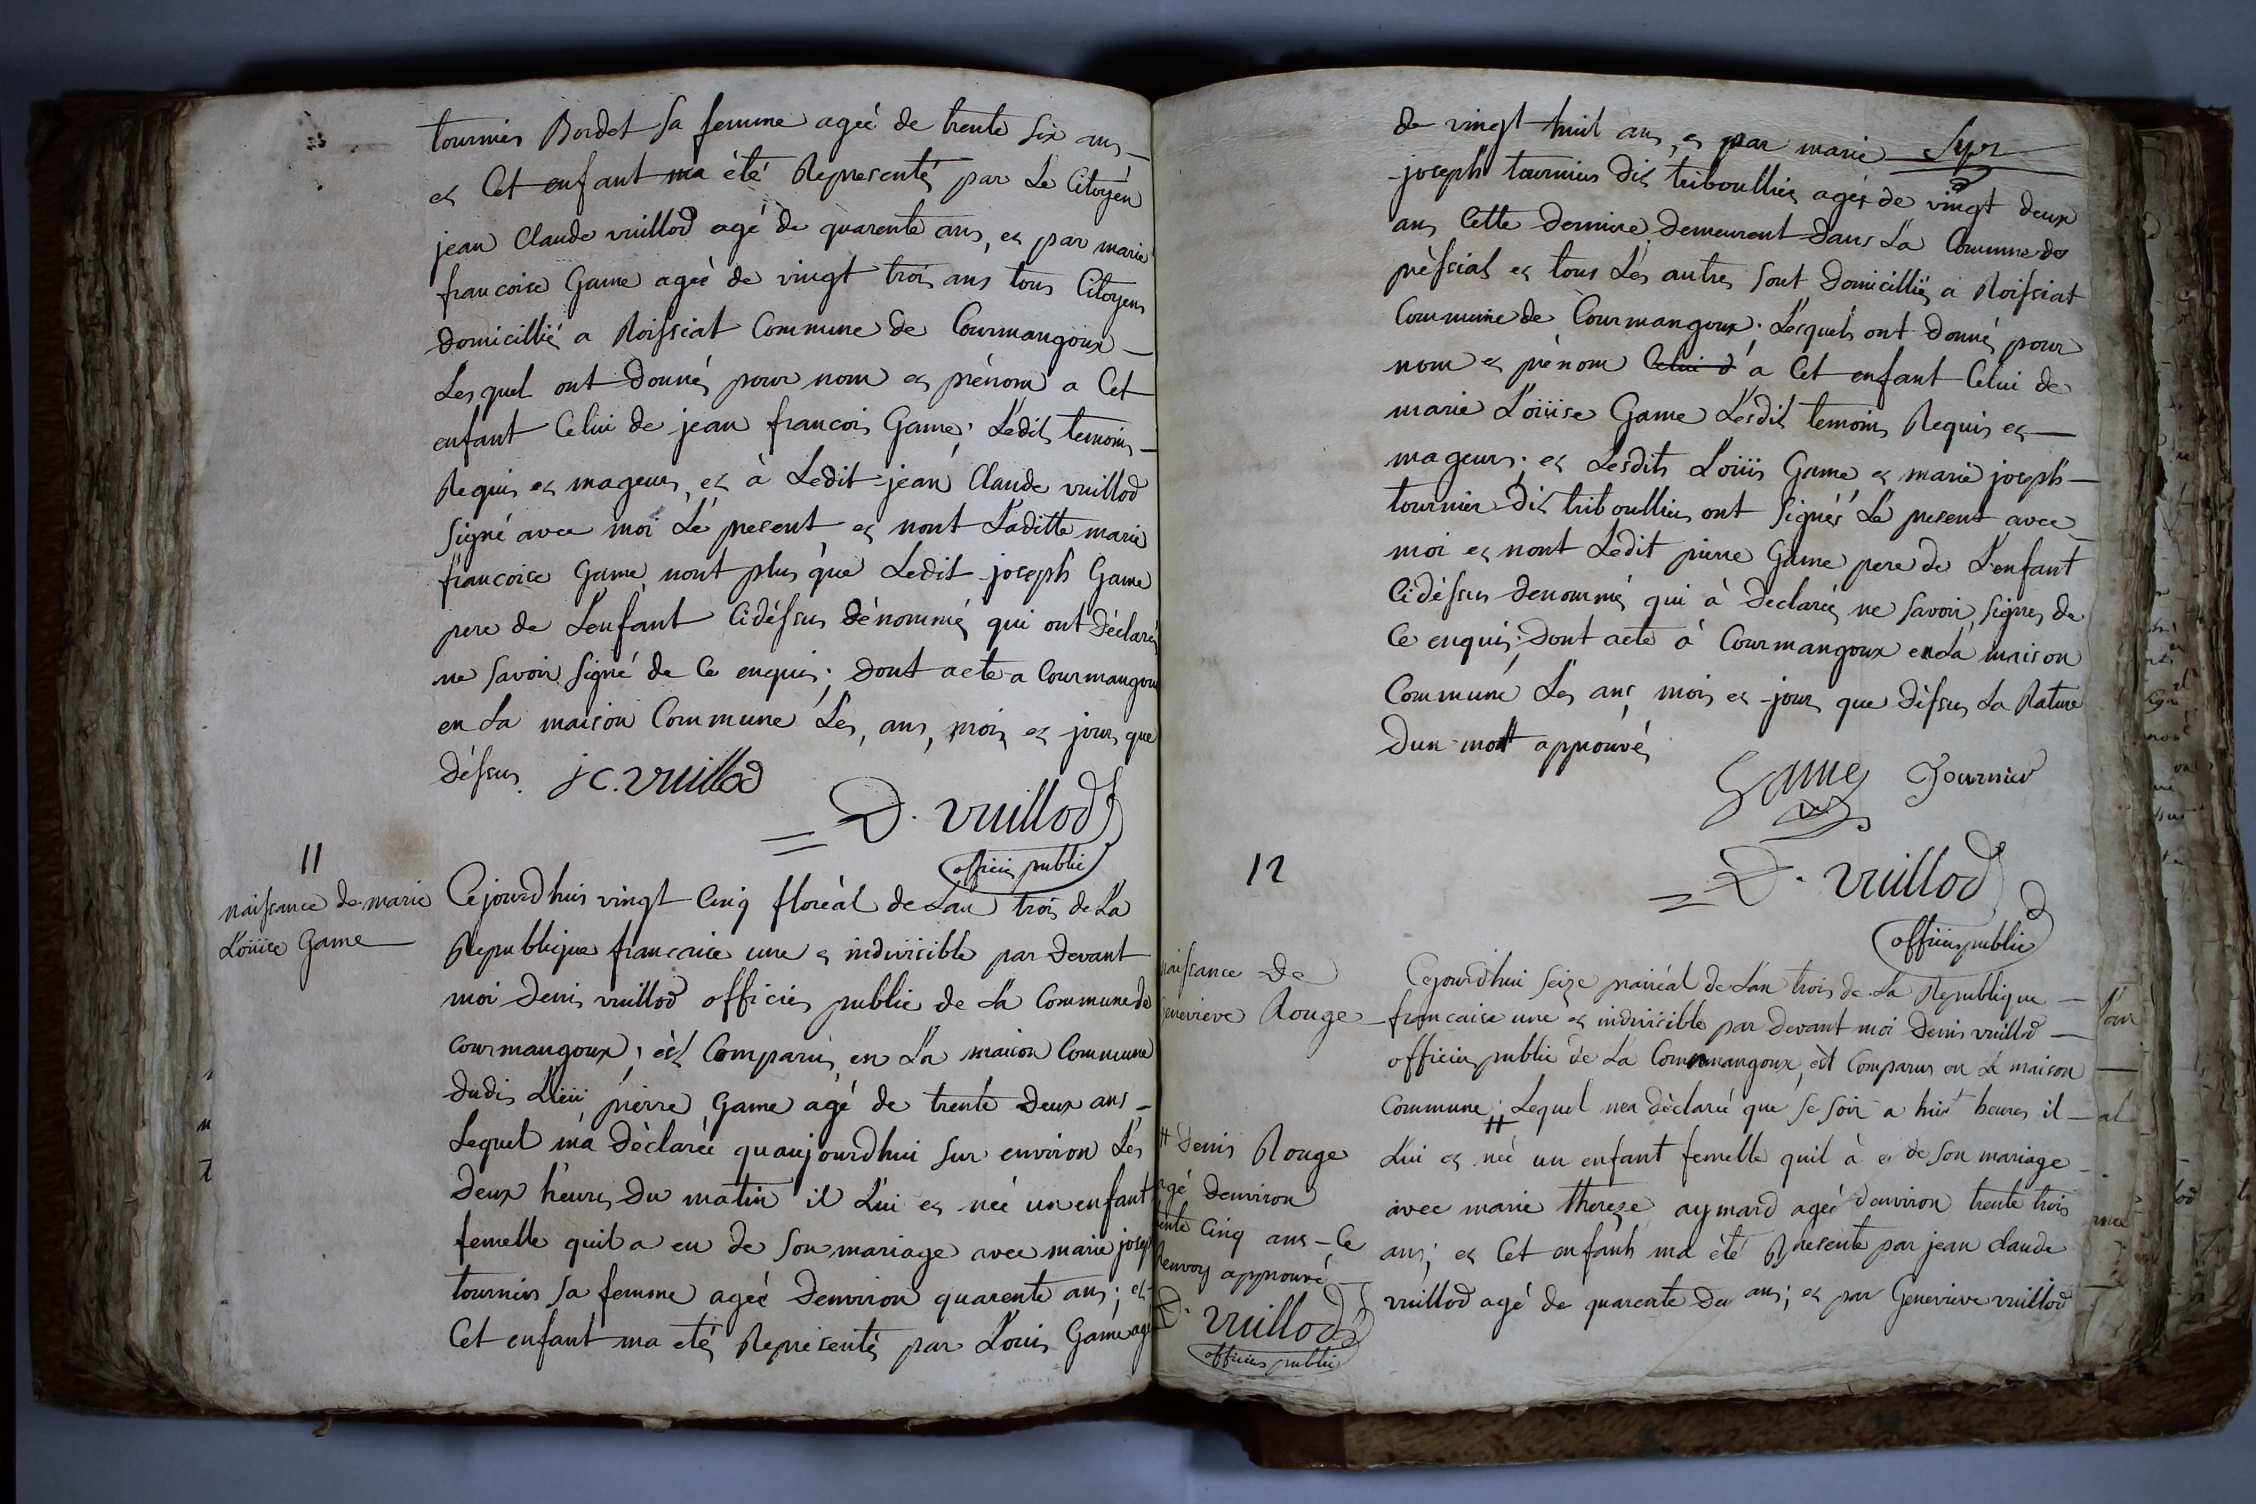 tournier Bordet sa femme ageé de trente six ans
et Cet enfant ma été Representé par Le Citoyen
jean Claude vuillod agé de quarente ans, et par marie
francoise Game ageé de vingt trois ans tous Citoyens
Domicillié a Roissiat Commune de Courmangoux
Lesquel ont donnés pour nom et prénom a Cet
enfant Celui de jean francois Game, Ledits temoins
Requis et mageurs, et à Ledit jean Claude vuillod
signé avec moi Le present et nont Laditte marie
francoise Game nont plus que Ledit joseph Game
pere de Lenfant Cidessus dénommé qui ont déclaré
ne savoir signé de Ce enquis; Dont acte a Courmangoux
en La maison Commune Les, ans, mois et jours que
dessus. jC. vuillod
D. vuillod
officier public
11
naissance de marie
Loüise Game
Cejourdhuis vingt Cinq floréal de Lan trois de La
Republique francaise une et indivisible par devant
moi denis vuillod officier public de La Commune de
Courmangoux, ést Comparus en La maison Commune
dudis Lieü pierre Game agé de trente deux ans
Lequel ma déclareé quaujourdhui sur environ Les
deux heures du matin il Lui es neé un enfant
femelle quil a eu de son mariage avec marie joseph
tournier sa femme ageé denviron quarente ans; et
Cet enfant ma eté Representé par Louis Game agé
de vingt huit ans, et par marie
joseph tournier dis triboullier ageé de vingt deux
ans Cette derniere demeurent dans La Commune de
préssiat et tous Les autres sont domicilliés a Roissiat
Commune de Courmangoux; Lesquels ont donné pour
nom et prénom Celui d a Cet enfant Celui de
marie Loüise Game Lesdits temoins Requis et
mageurs; et Lesdits Loüis Game et marie joseph
tournier dis triboullier ont signés Le present avec
moi et nont Ledit pierre Game pere de Lenfant
Cidessus denommé qui à declareé ne savoir signer de
Ce enquis; Dont acte à Courmangoux en La maison
Commune Les ans, mois et jours que dessus La Rature
dun mott approuvé
Game Tournier
D. vuillod
officier public
12
naissance de
Genevieve Rouge
Cejourdhui seize prairéal de Lan trois de La Republique
francaise une et indivisible par devant moi denis vuillod
officier public de La Commangoux, ést Comparus en La maison
Commune; Lequel ma déclareé que se soir a huit heures il
Lui es neé un enfant femelle quil à eu de son mariage
avec marie thereze aymard ageé denviron trente trois
ans; et Cet enfant ma été presenté par jean claude
vuillod agé de quarente deu ans; et par Genevieve vuillod
Denis Rouge
agé denviron
trente Cinq ans – Ce
Renvoy approuvé
D. vuillod
officier public